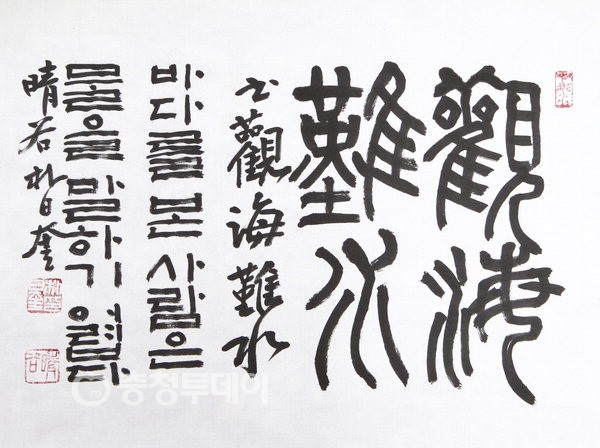 觀海
難水
觀海難水
바다를 본 사람은
물을 말하기 어렵다
晴谷 朴日奎
충청투데이